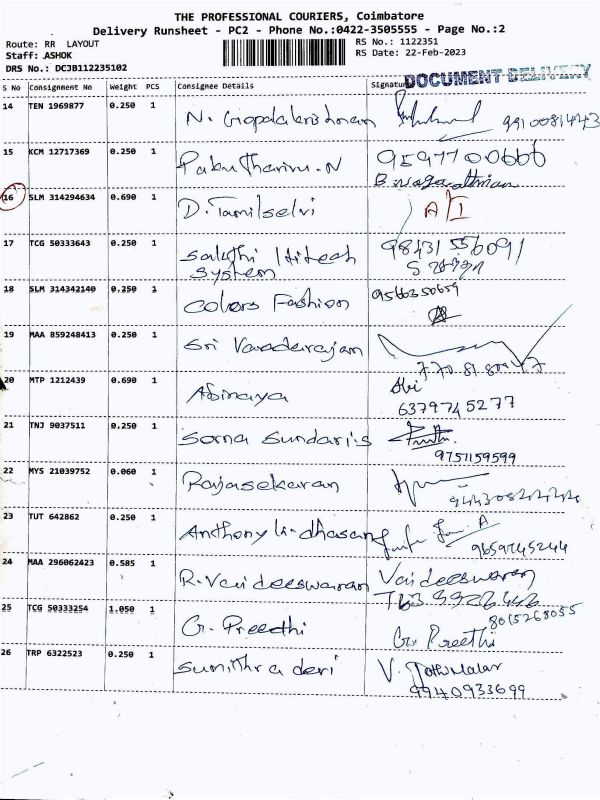 THE PROFESSIONAL COURIERS, Coimbatore
Delivery Runsheet - PC2 - Phone No.:0422-3505555 - Page No.:2
Route: RR LAYOUT RS No.: 1122351
Staff: ASHOK RS Date: 22-Feb-2023
DRS No.: DCJB112235102 DOCUMENT DELIVERY
S No Consignment No Weight PCS Consignee Details Signature
14 TEN 1969877 0.250 1 N. Gopalakrishnan 9910081443
15 KCM 12717369 0.250 1 9597700666
16 SLM 314294634 0.690 1 D. Tamilselvi A/I
17 TCG 50333643 0.250 1 Sakthi Hitech 9843155609
System
18 SLM 314342140 0.250 1 Colors Fashion 9566350659
19 MAA 859248413 0.250 1 Sri Varadarajan
20 MTP 1212439 0.690 1 Abinaya Abi
6379745277
21 TNJ 9037511 0.250 1 Sorna Sundari.s
9751159599
22 MYS 21039752 0.060 1 Rajasekaran
23 TUT 642862 0.250 1 Anthony
9659745244
24 MAA 296062423 0.585 1 R. Vaideeswaran Vaideeswaran
25 TCG 50333254 1.050 1 G. Preethi 8015268055
G. Preethi
26 TRP 6322523 0.250 1 Sumithra devi V. Jothimalar
9940933699